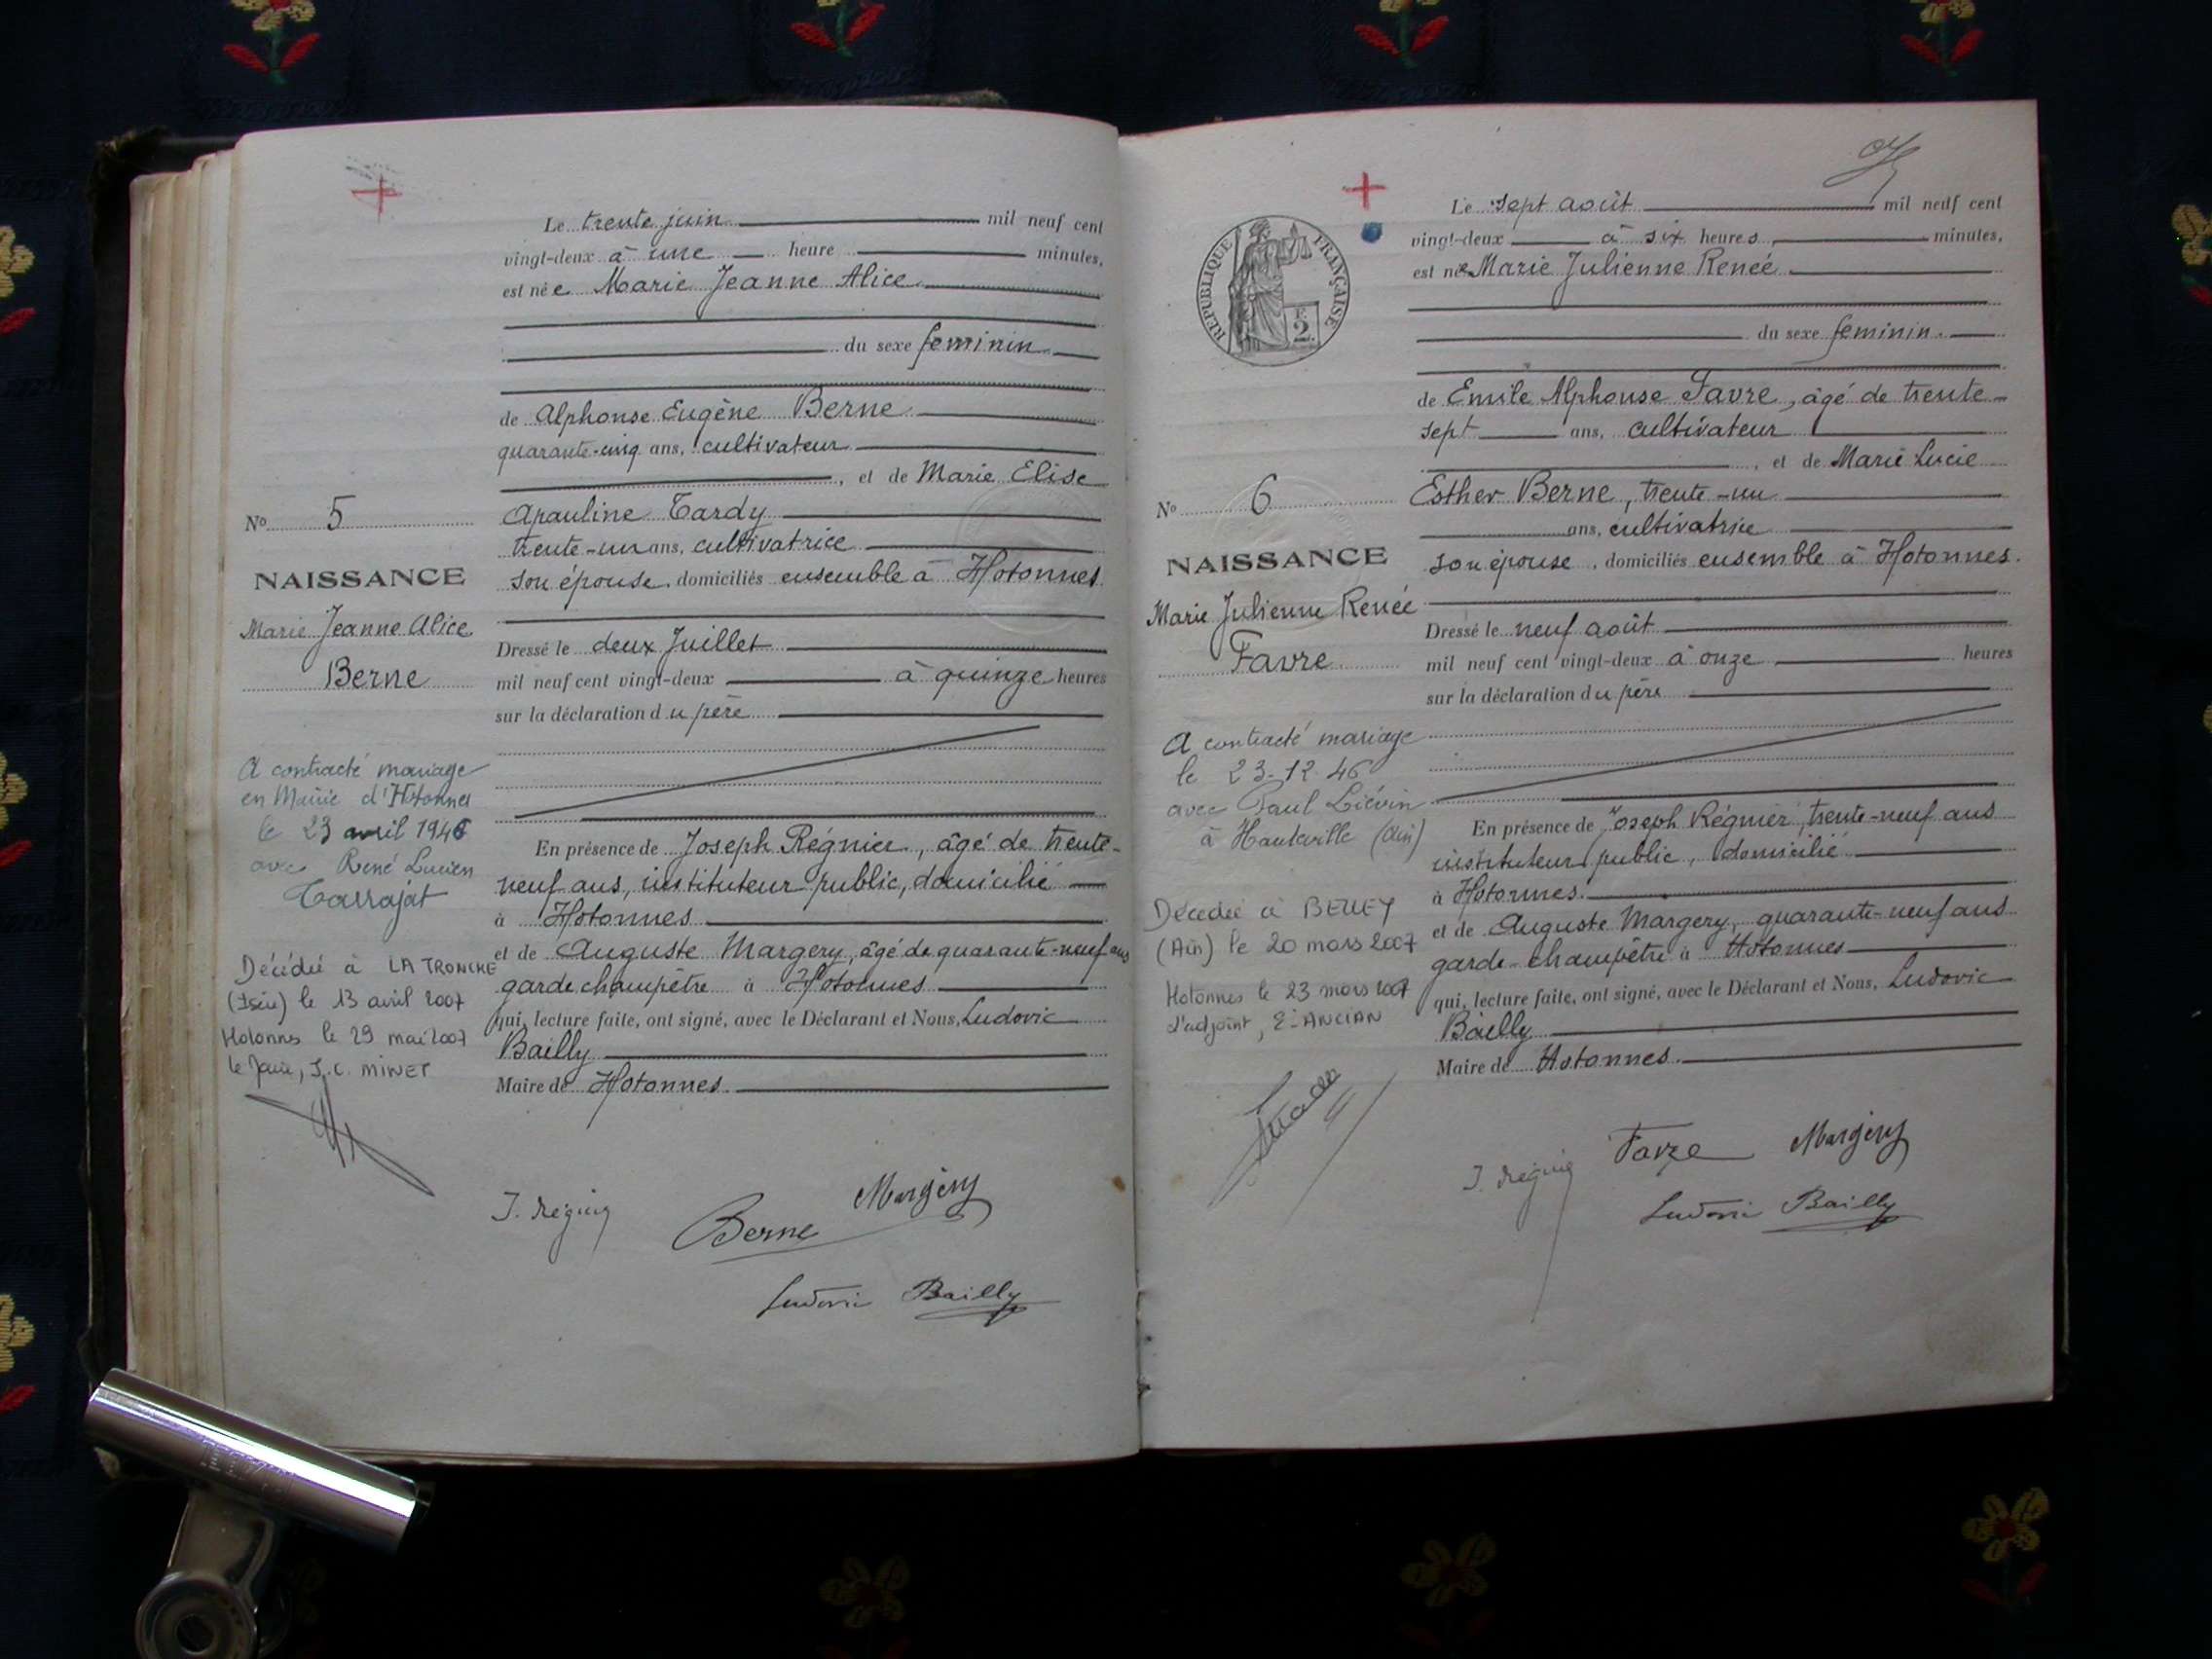 Le trente juin mil neuf cent
vingt-deux à une heure minutes,
est née Marie Jeanne Alice
du sexe feminin
de Alphonse Eugène Berne
quarante-cinq ans, cultivateur
, et de Marie Elise
Apauline Tardy
trente-un ans, cultivatrice
son épouse, domiciliés ensemble à Hotonnes
Dressé le deux Juillet
mil neuf cent vingt-deux à quinze heures
sur la déclaration du père
En présence de Joseph Régnier, âgé de trente-
neuf ans, instituteur public, domicilié
à Hotonnes
et de Auguste Margery, âgé de quarante-neuf ans
garde champêtre à Hotonnes
qui, lecture faite, ont signé, avec le Déclarant et Nous, Ludovic
Bailly
Maire de Hotonnes.
No 5
NAISSANCE
Marie Jeanne Alice
Berne
A contracté mariage
en Mairie d'Hotonnes
le 23 avril 1946
avec René Lucien
Tarrajat
Décédée à LA TRONCHE
(Isère) le 13 avril 2007
Hotonnes le 29 mai 2007
le Maire, J.C. MINET
J. Régnier
Berne
Margery
Ludovic Bailly
Le sept août mil neuf cent
vingt-deux à six heures minutes,
est née Marie Julienne Reneé
du sexe feminin.
de Emile Alphonse Favre, âgé de trente-
sept ans, cultivateur
, et de Marie Lucie
Esther Berne, trente-un
ans, cultivatrice
son épouse, domiciliés ensemble à Hotonnes.
Dressé le neuf août
mil neuf cent vingt-deux à onze heures
sur la déclaration du père
En présence de Joseph Régnier, trente-neuf ans
instituteur public, domicilié
à Hotonnes.
et de Auguste Margery, quarante-neuf ans
garde-champêtre à Hotonnes
qui, lecture faite, ont signé, avec le Déclarant et Nous, Ludovic
Bailly
Maire de Hotonnes.
REPUBLIQUE FRANÇAISE
2
No 6
NAISSANCE
Marie Julienne Renée
Favre
A contracté mariage
le 23-12-46
avec Paul Liévin
à Hauteville (Ain)
Décédée à BELLEY
(Ain) le 20 mars 2007
Hotonnes le 23 mars 2007
L'adjoint, E. ANCIAN
J. Régnier
Favre
Margery
Ludovic Bailly